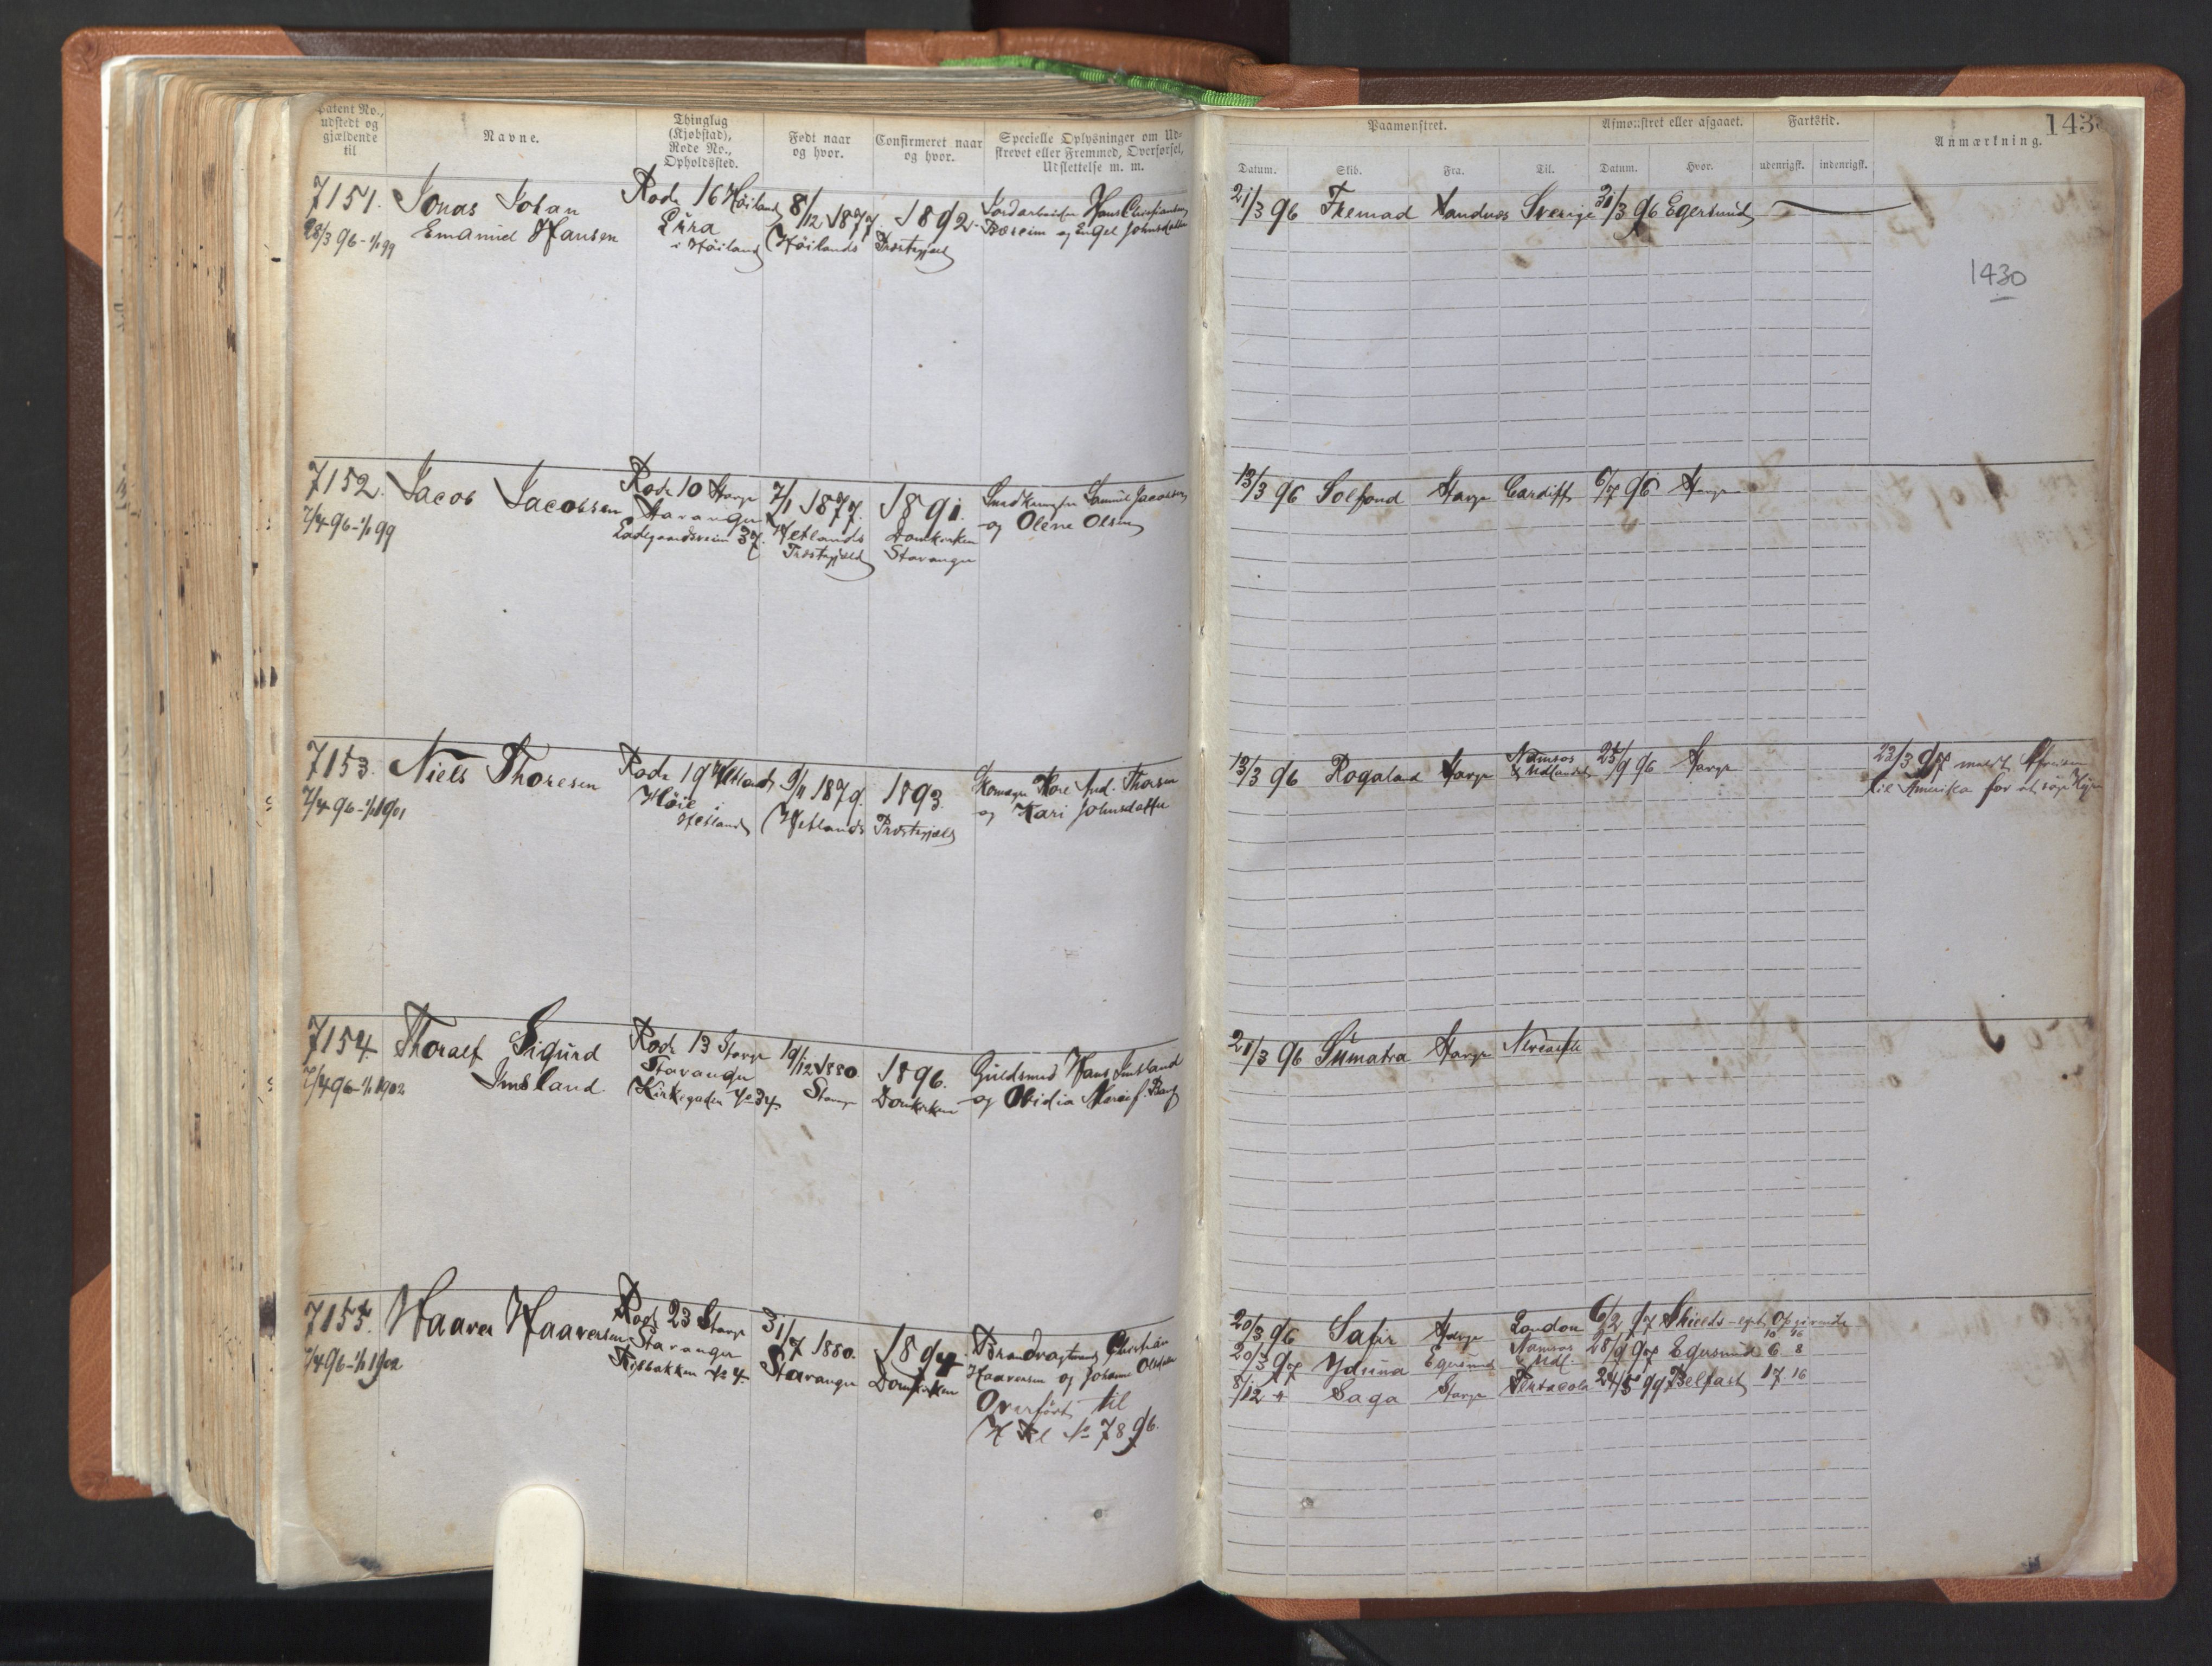 Patent No.,
udstedt og
gjældende
til
Navne.
Thinglag
(Kjøbstad),
Rode No.,
Opholdssted.
Født naar
og hvor.
Confirmeret naar
og hvor.
Specielle Oplysninger om Ud-
skrevet eller Fremmed, Overførsel,
Udslettelse m. m.
7151. Jonas Johan
28/3 96 - 1/1 99 Emanuel Hansen
Rode 16 Høiland
Lura
i Høiland
8/12 1877
(Høilands
1892.
Præstegjæld)
Jordarbeider Hans Christiansen
og Engel Johnsdatter
7152. Jacob Jacobsen
7/4 96 - 1/1 99
Rode 10 Stavgr
Stavanger
Ladegaardsveien 37.
7/1 1877.
Hetlands
Præstegjæld
1891.
Domkirken
Stavanger
Samuel Jacobsen
og Olene Olsen
7153. Niels Thoresen
7/4 96 - 1/1 1901
Rode 19 Hetland
Høie i
Hetland
9/11 1879.
(Hetlands
1893.
Præstegjæld)
Skomager Thore And. Thorsen
og Kari Johnsdatter
7154 Thoralf Sigurd
7/4 96 - 1/1 1902 Imsland.
Rode 13 Stavgr
Stavanger
Kirkegaden No 34
19/12 1880.
Stavgr
1896.
Domkirken
Guldsmed Hans Imsland
og Obidia
7155. Haaver Haaversen
7/4 96 - 1/1 1902
Rode 23 Stavgr
Stavanger
No 4
31/7 1880.
Stavanger
1894
Domkirken
Brandvagtmand Christian
Haaversen og Johanne Olsdatter
Overført til
H Kl No 7896.
Paamønstret.
Afmønstret eller afgaaet.
Fartstid.
Anmærkning.
143
Datum.
Skib.
Fra.
Til.
Datum.
Hvor.
udenrigsk.
indenrigsk.
21/3 96 Fremad Sandnæs Sverige 31/3 96 Egersund
1430
13/3 96 Solfond Stavgr Cardiff 6/7 96 Stavgr
13/3 96 Rogaland Stavgr Namsos & Udlandet 25/9 96 Stavgr
23/3 97 meldt Afreisen
til Amerika for at søge Hyre
21/3 96 Sumatra Stavgr Newcastle
20/3 96 Safir Stavgr London 6/2 97 Shields - egen Opgivende
20/3 97 Yduna Egersund Namsos & Udl. 28/9 97 Egersund 6 8
8/12 " Saga Stavgr Pensacola 24/5 99 Belfast 17 16